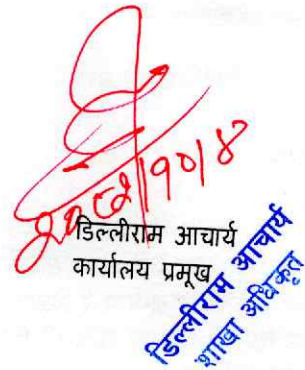 २०८१।१०।४
डिल्लीराम आचार्य
कार्यालय प्रमुख
डिल्लीराम आचार्य
शाखा अधिकृत